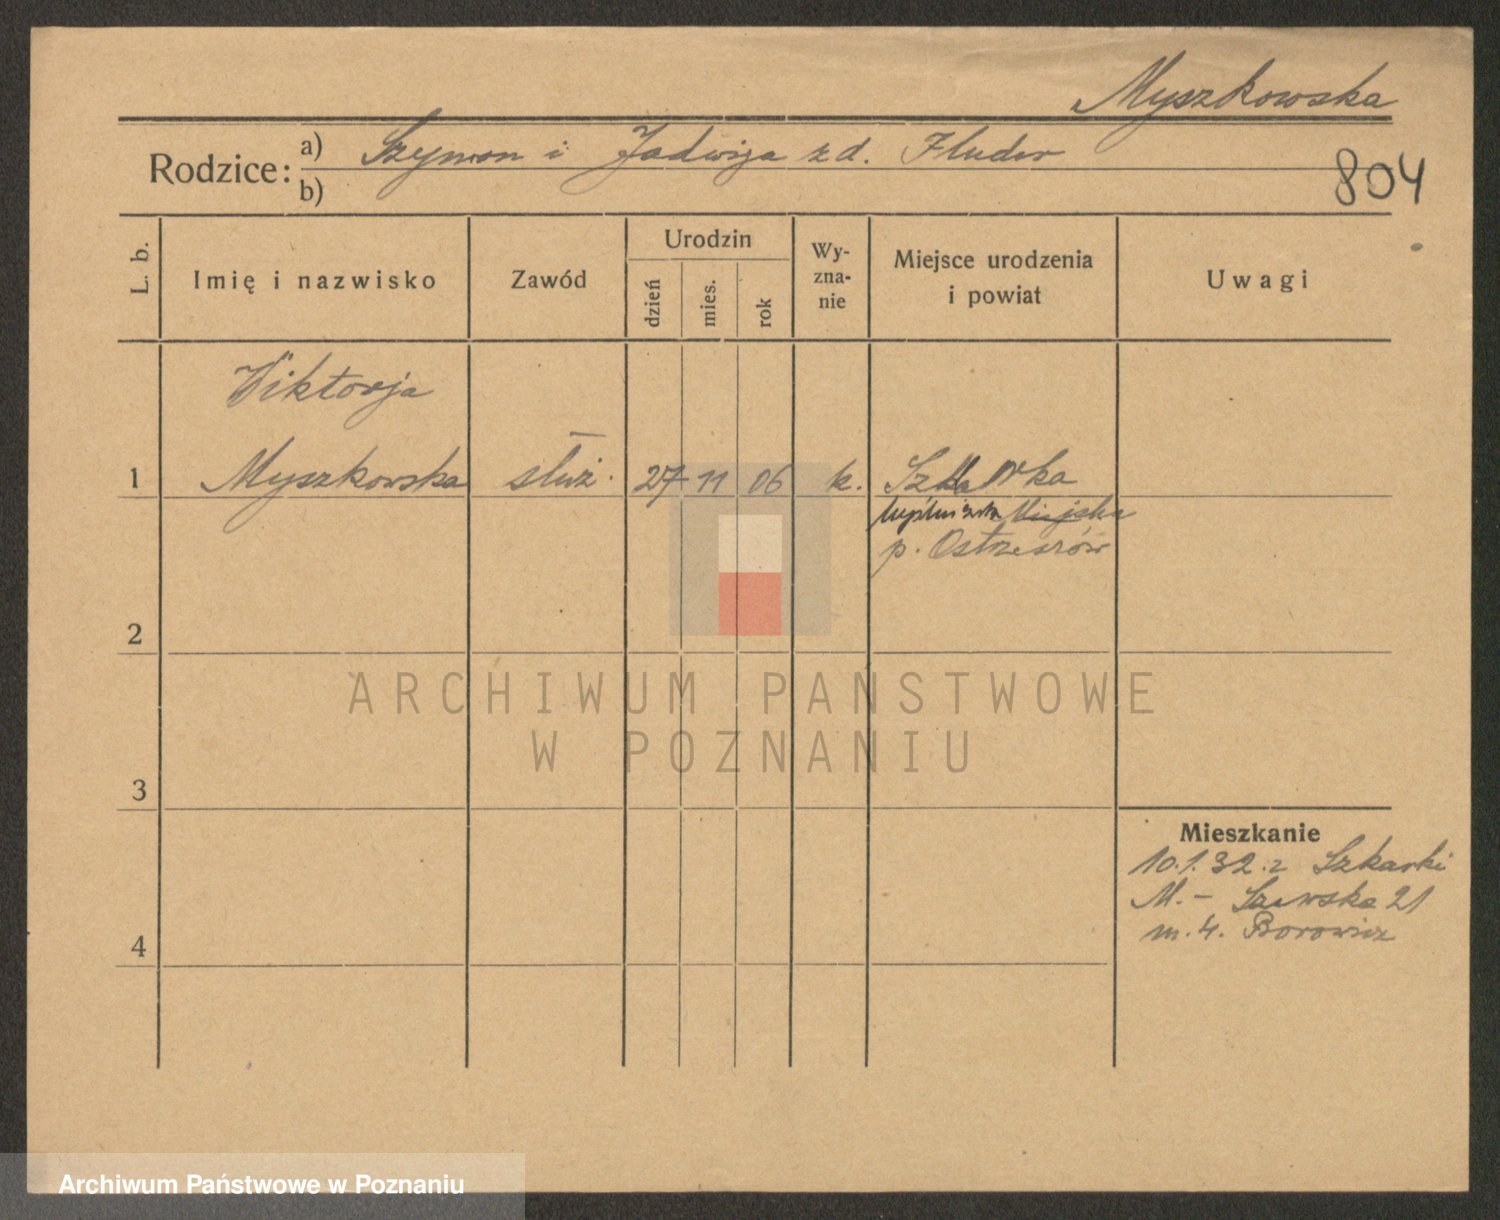 Myszkowska
Rodzice: a) Szymon i Jadwiga z d. Fluder
b)
804
L. b.
Imię i nazwisko
Zawód
Urodzin
dzień
mies.
rok
Wy-
zna-
nie
Miejsce urodzenia
i powiat
Uwagi
Wiktorja
1 Myszkowska służ. 27 11 06 k. Szklarka
p. Ostrzeszów
2
3
4
Mieszkanie
10.1.32. z Szkarki
M. - Szewska 21
m. 4. Borowicz
ARCHIWUM PAŃSTWOWE
W POZNANIU
Archiwum Państwowe w Poznaniu